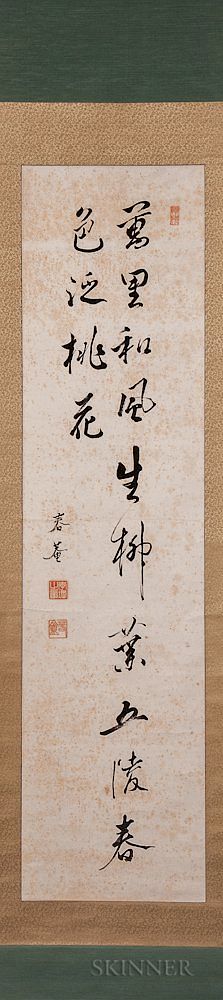 萬里和風生柳葉五陵春
色泛桃花
容菴
SKINNER